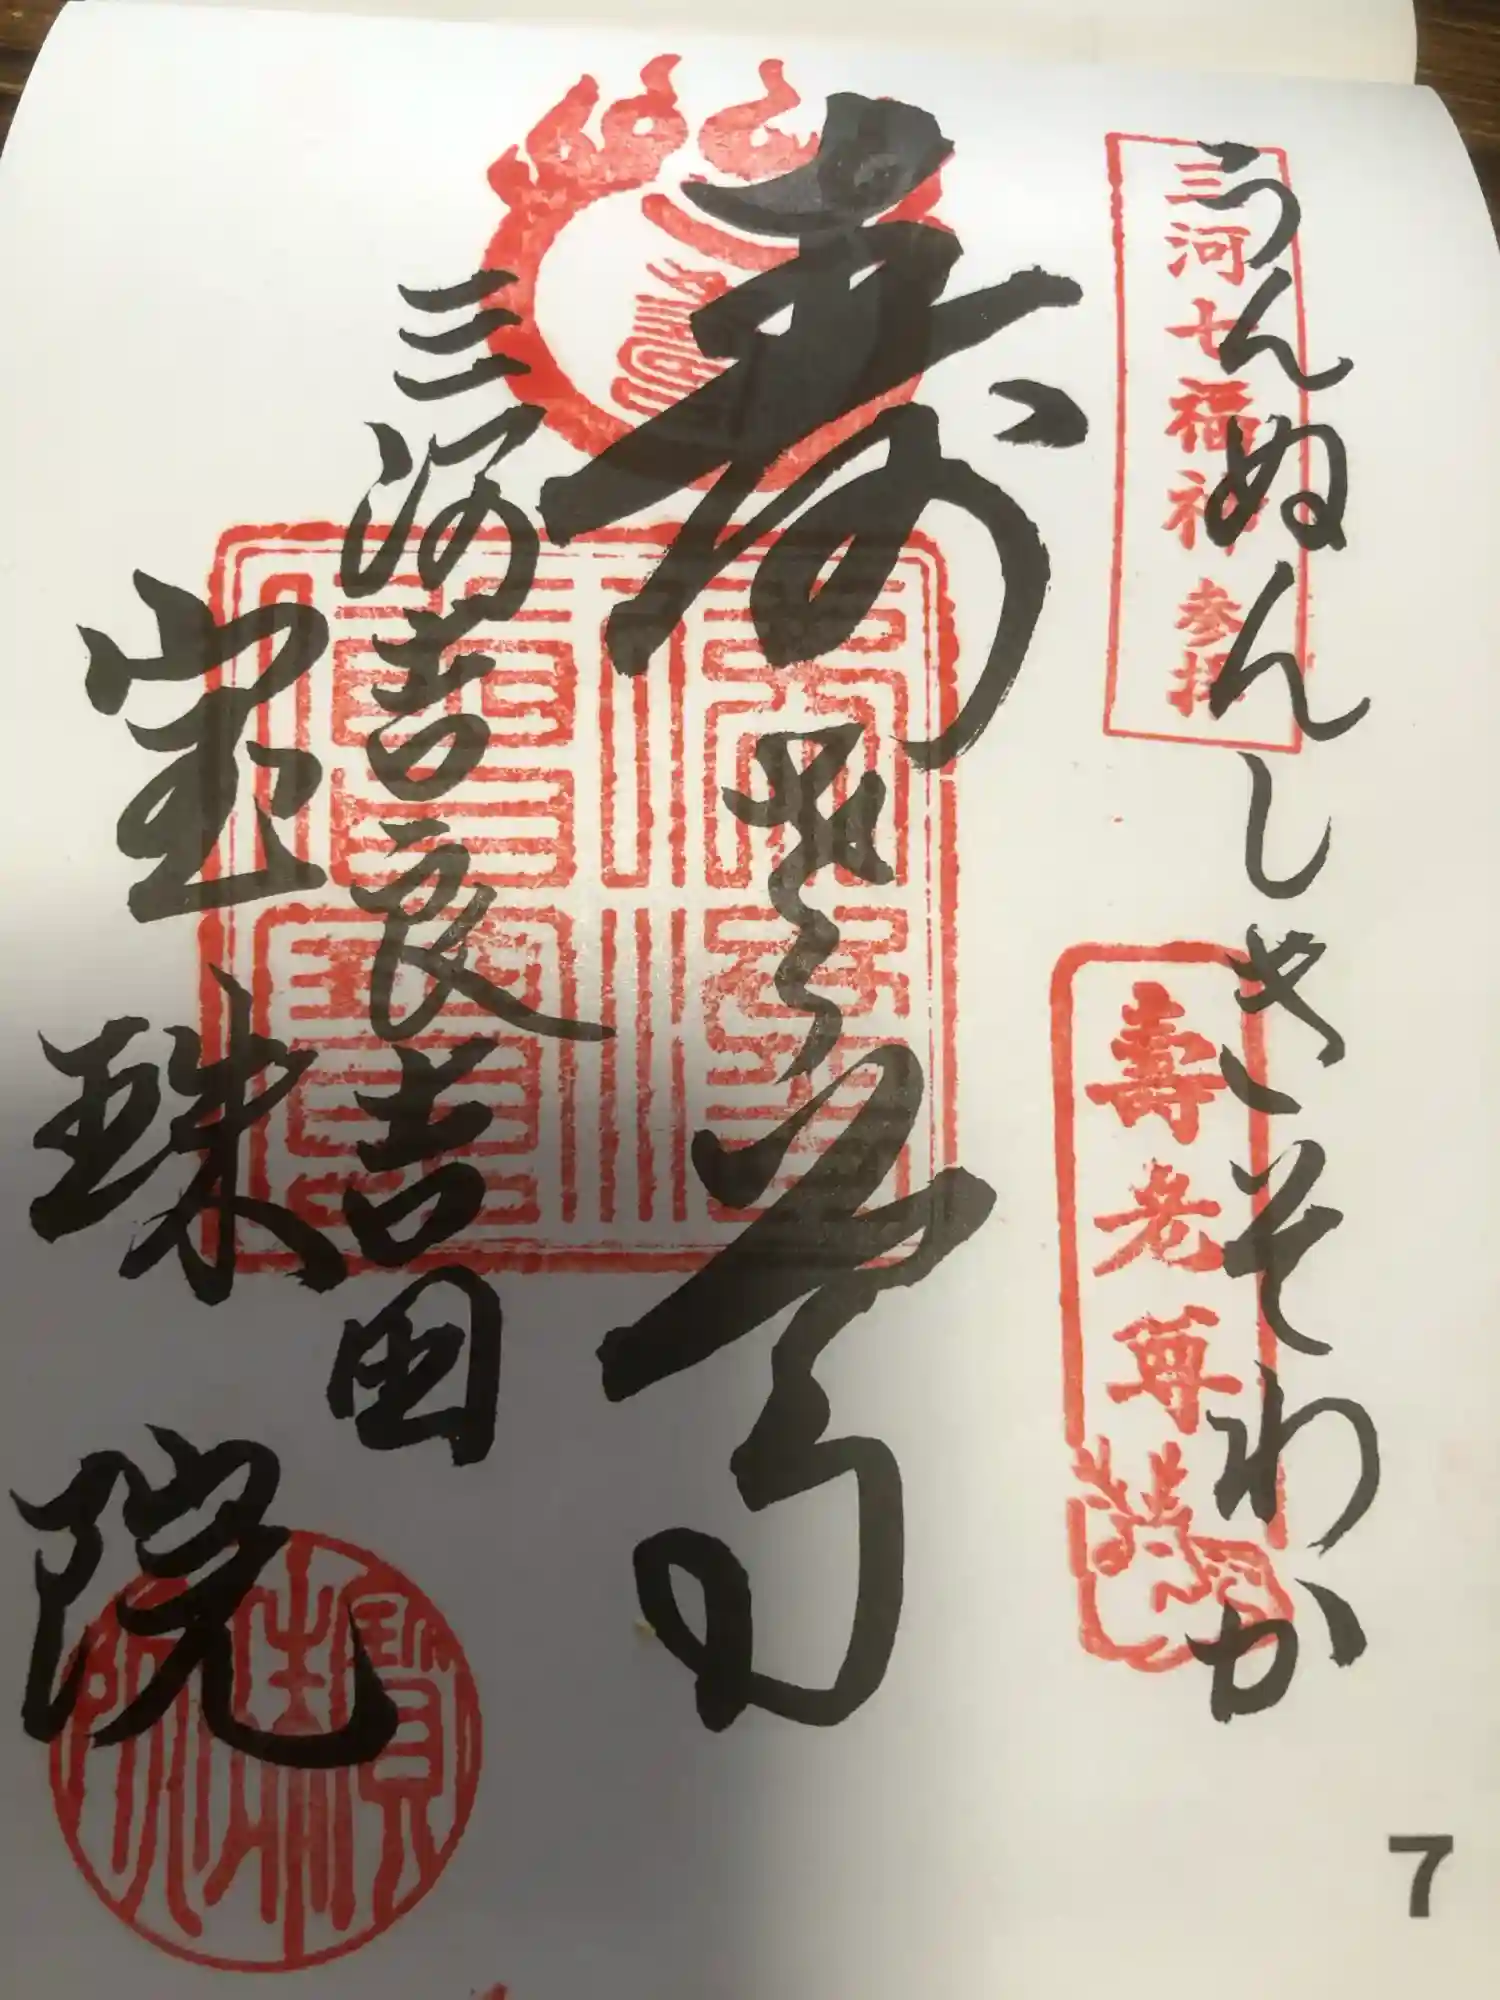 うんぬんしきそわか
三河七福神参拝
壽老尊
寿老尊
三河吉良吉田
宝珠院
寳珠院
7